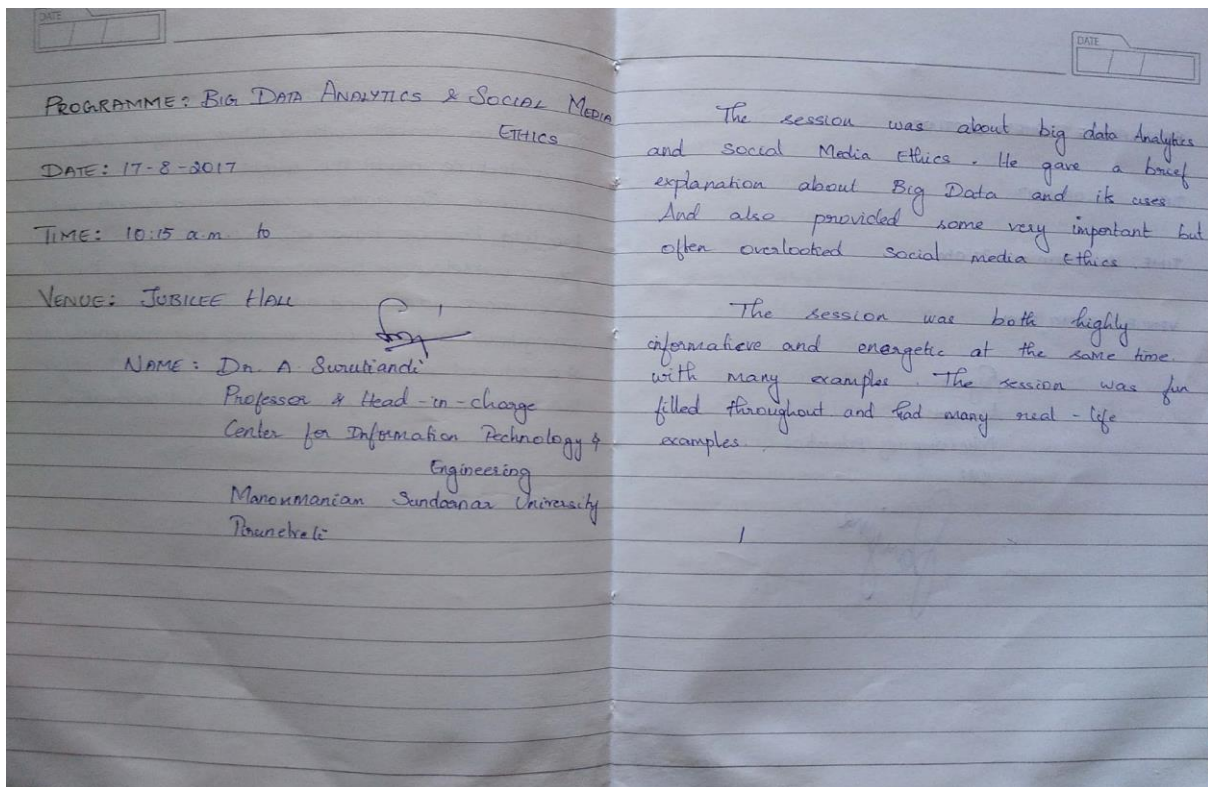 DATE
PROGRAMME: BIG DATA ANALYTICS & SOCIAL MEDIA
ETHICS
DATE: 17-8-2017
TIME: 10:15 a.m. to
VENUE: JUBILEE HALL
NAME: Dr. A. Suruliandi
Professor & Head-in-charge
Center for Information Technology &
Engineering
Manonmanian Sundarnar University
Tirunelveli
DATE
The session was about big data Analytics
and social Media Ethics. He gave a brief
explanation about Big Data and its uses
And also provided some very important but
often overlooked social media Ethics.
The session was both highly
informatieve and energetic at the same time.
with many examples. The session was fun
filled throughout and had many real-life
examples.